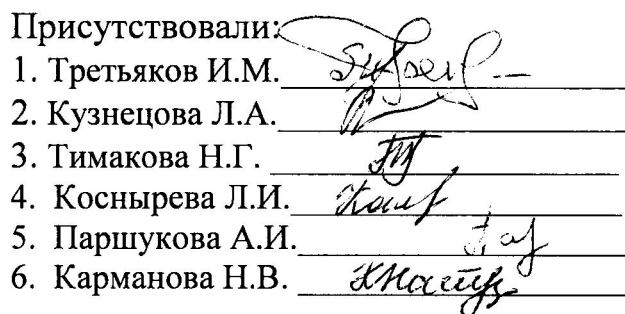 Присутствовали:
1. Третьяков И.М.
2. Кузнецова Л.А.
3. Тимакова Н.Г.
4. Коснырева Л.И.
5. Паршукова А.И.
6. Карманова Н.В.